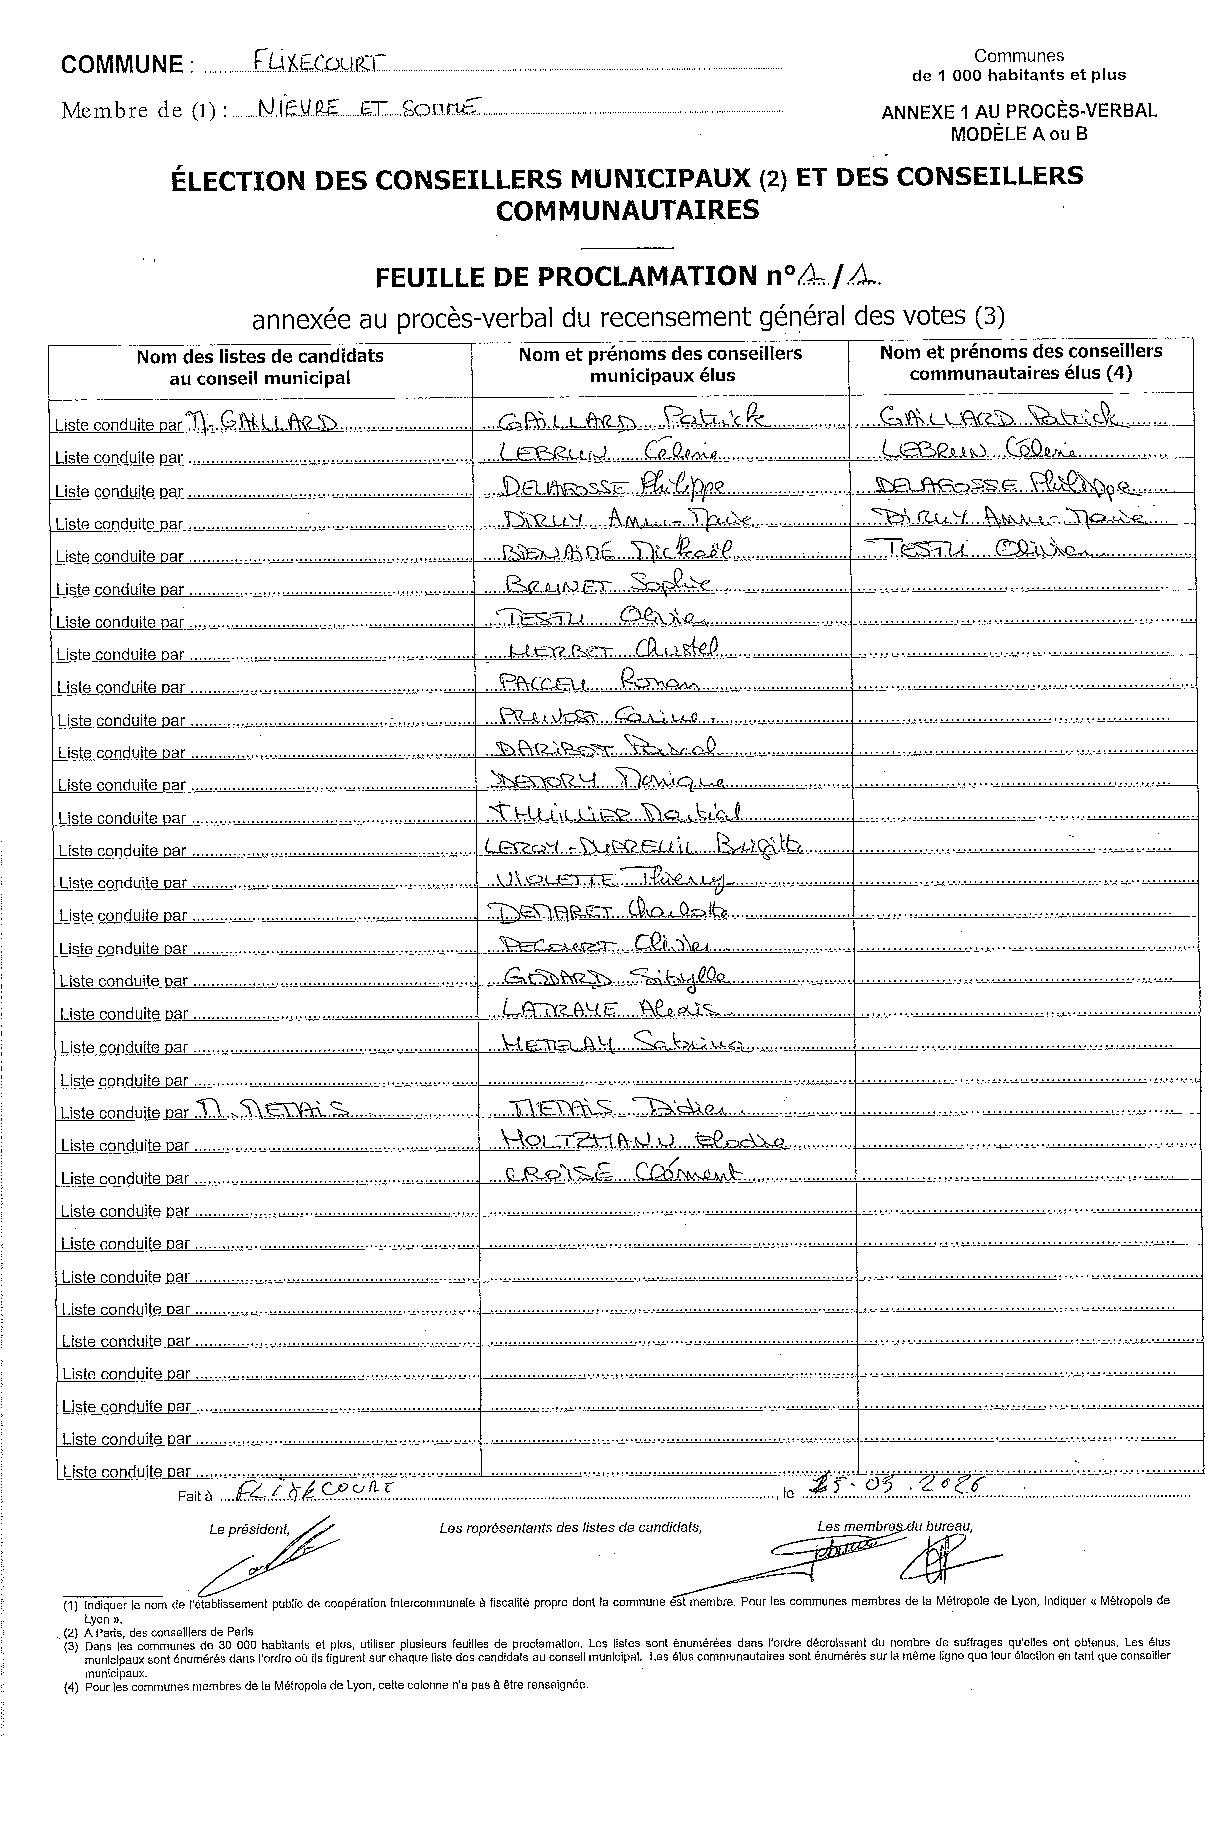 COMMUNE : FLIXECOURT
Communes
de 1 000 habitants et plus
Membre de (1) : NIEVRE ET SOMME
ANNEXE 1 AU PROCÈS-VERBAL
MODÈLE A ou B
ÉLECTION DES CONSEILLERS MUNICIPAUX (2) ET DES CONSEILLERS
COMMUNAUTAIRES
FEUILLE DE PROCLAMATION n° 1/1
annexée au procès-verbal du recensement général des votes (3)
Nom des listes de candidats au conseil municipal | Nom et prénoms des conseillers municipaux élus | Nom et prénoms des conseillers communautaires élus (4)
Liste conduite par M. GAILLARD GAILLARD Patrick GAILLARD Patrick
Liste conduite par LEBRUN LEBRUN
Liste conduite par DELAFOSSE Philippe DELAFOSSE Philippe
Liste conduite par DIRUY Anne-Marie DIRUY Anne-Marie
Liste conduite par BIENAIME Mickaël TESTU Olivier
Liste conduite par BRUNET Sophie
Liste conduite par TESTU Olivier
Liste conduite par HERBET Christel
Liste conduite par Ronan
Liste conduite par PREVOST Carine
Liste conduite par Pascal
Liste conduite par Monique
Liste conduite par THUILLIER Martial
Liste conduite par LEROY-DUBREUIL Brigitte
Liste conduite par VIOLETTE Thierry
Liste conduite par DEMARET Charlotte
Liste conduite par DECOURT Olivier
Liste conduite par GODARD Sibylle
Liste conduite par Alexis
Liste conduite par Sabrina
Liste conduite par
Liste conduite par M. METAIS METAIS Didier
Liste conduite par HOLTZMANN Elodie
Liste conduite par CROISE Clément
Liste conduite par
Liste conduite par
Liste conduite par
Liste conduite par
Liste conduite par
Liste conduite par
Liste conduite par
Liste conduite par
Liste conduite par
Fait à FLIXECOURT, le 15.03.2026
Le président, Les représentants des listes de candidats, Les membres du bureau,
(1) Indiquer le nom de l'établissement public de coopération intercommunale à fiscalité propre dont la commune est membre. Pour les communes membres de la Métropole de Lyon, indiquer « Métropole de
Lyon ».
(2) A Paris, des conseillers de Paris
(3) Dans les communes de 30 000 habitants et plus, utiliser plusieurs feuilles de proclamation. Les listes sont énumérées dans l'ordre décroissant du nombre de suffrages qu'elles ont obtenus. Les élus
municipaux sont énumérés dans l'ordre où ils figurent sur chaque liste des candidats au conseil municipal. Les élus communautaires sont énumérés sur la même ligne que leur élection en tant que conseiller
municipaux.
(4) Pour les communes membres de la Métropole de Lyon, cette colonne n'a pas à être renseignée.